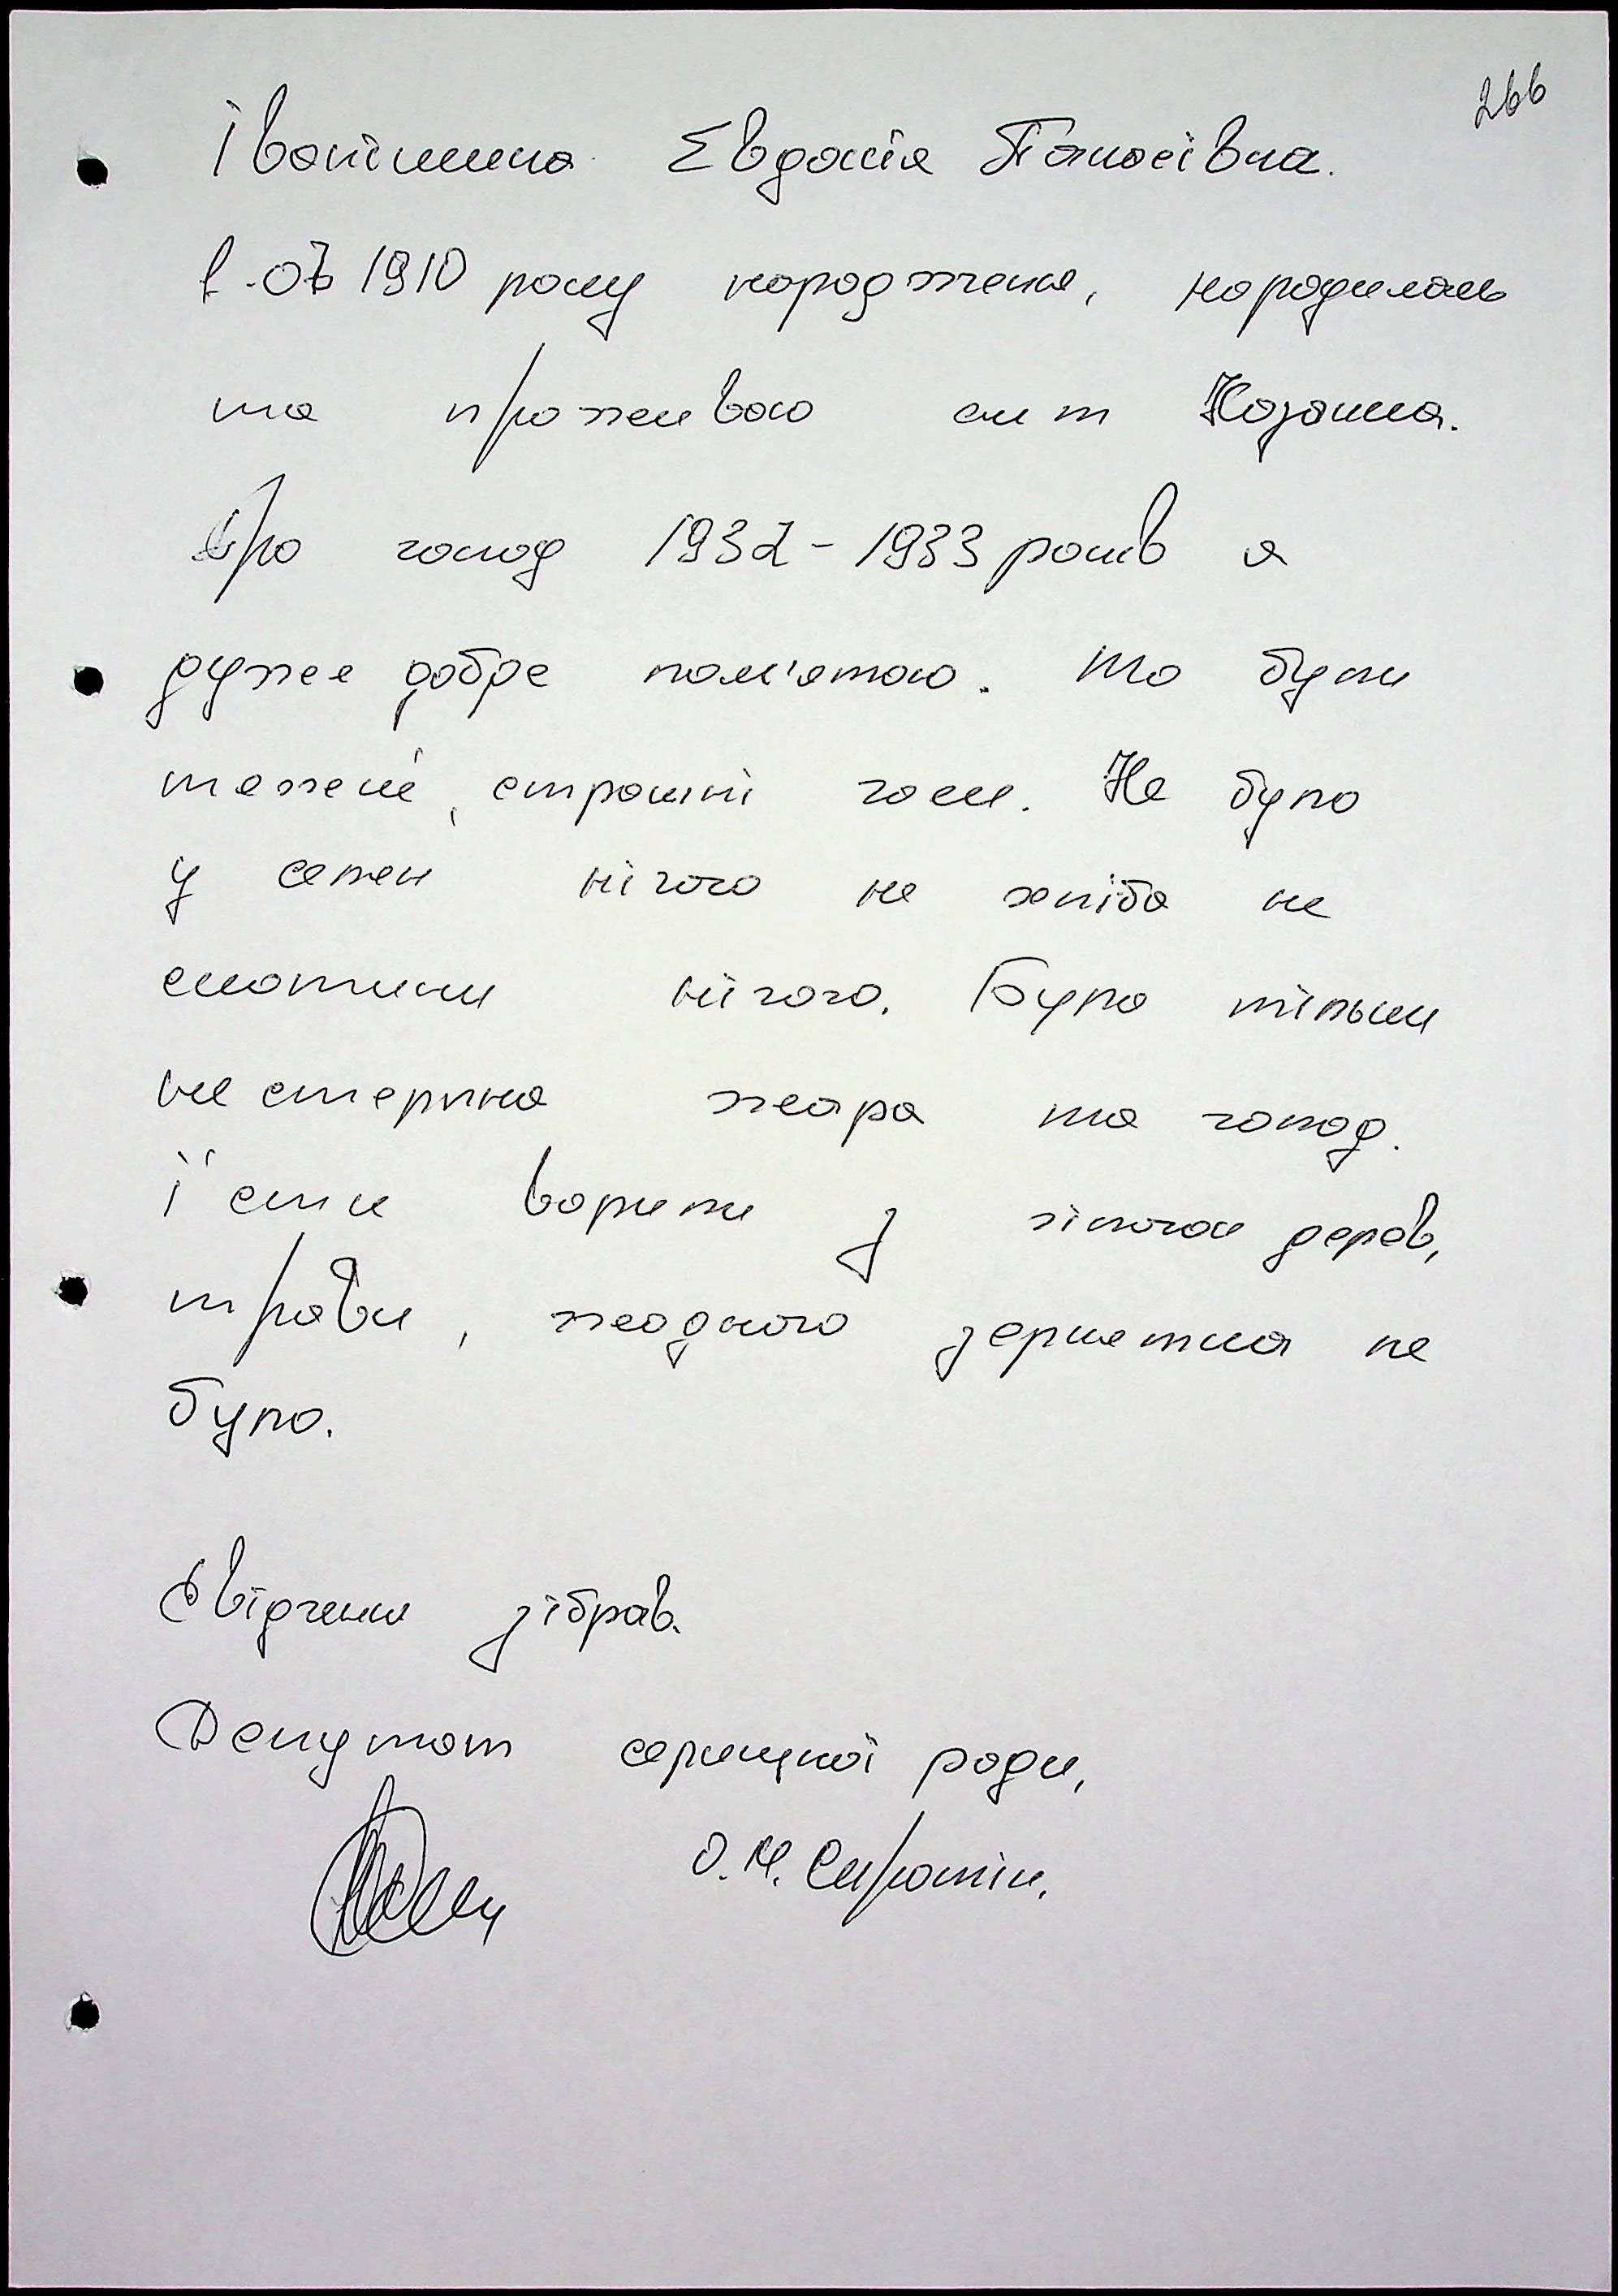 266
Євдокія Панасівна.
1910 року народження, народилась
та проживаю смт Козацьке.
Про голод 1932-1933 років я
дуже добре пам'ятаю. То були
тяжкі, страшні часи. Не було
у селян нічого не хліба не
скотини нічого. Було тільки
нестерпна жара та голод.
Їсти варили з гілочок дерев,
трави, жодного зернятка не
було.
Свідчення зібрав.
Депутат селищної ради,
О.М. Сиротін.